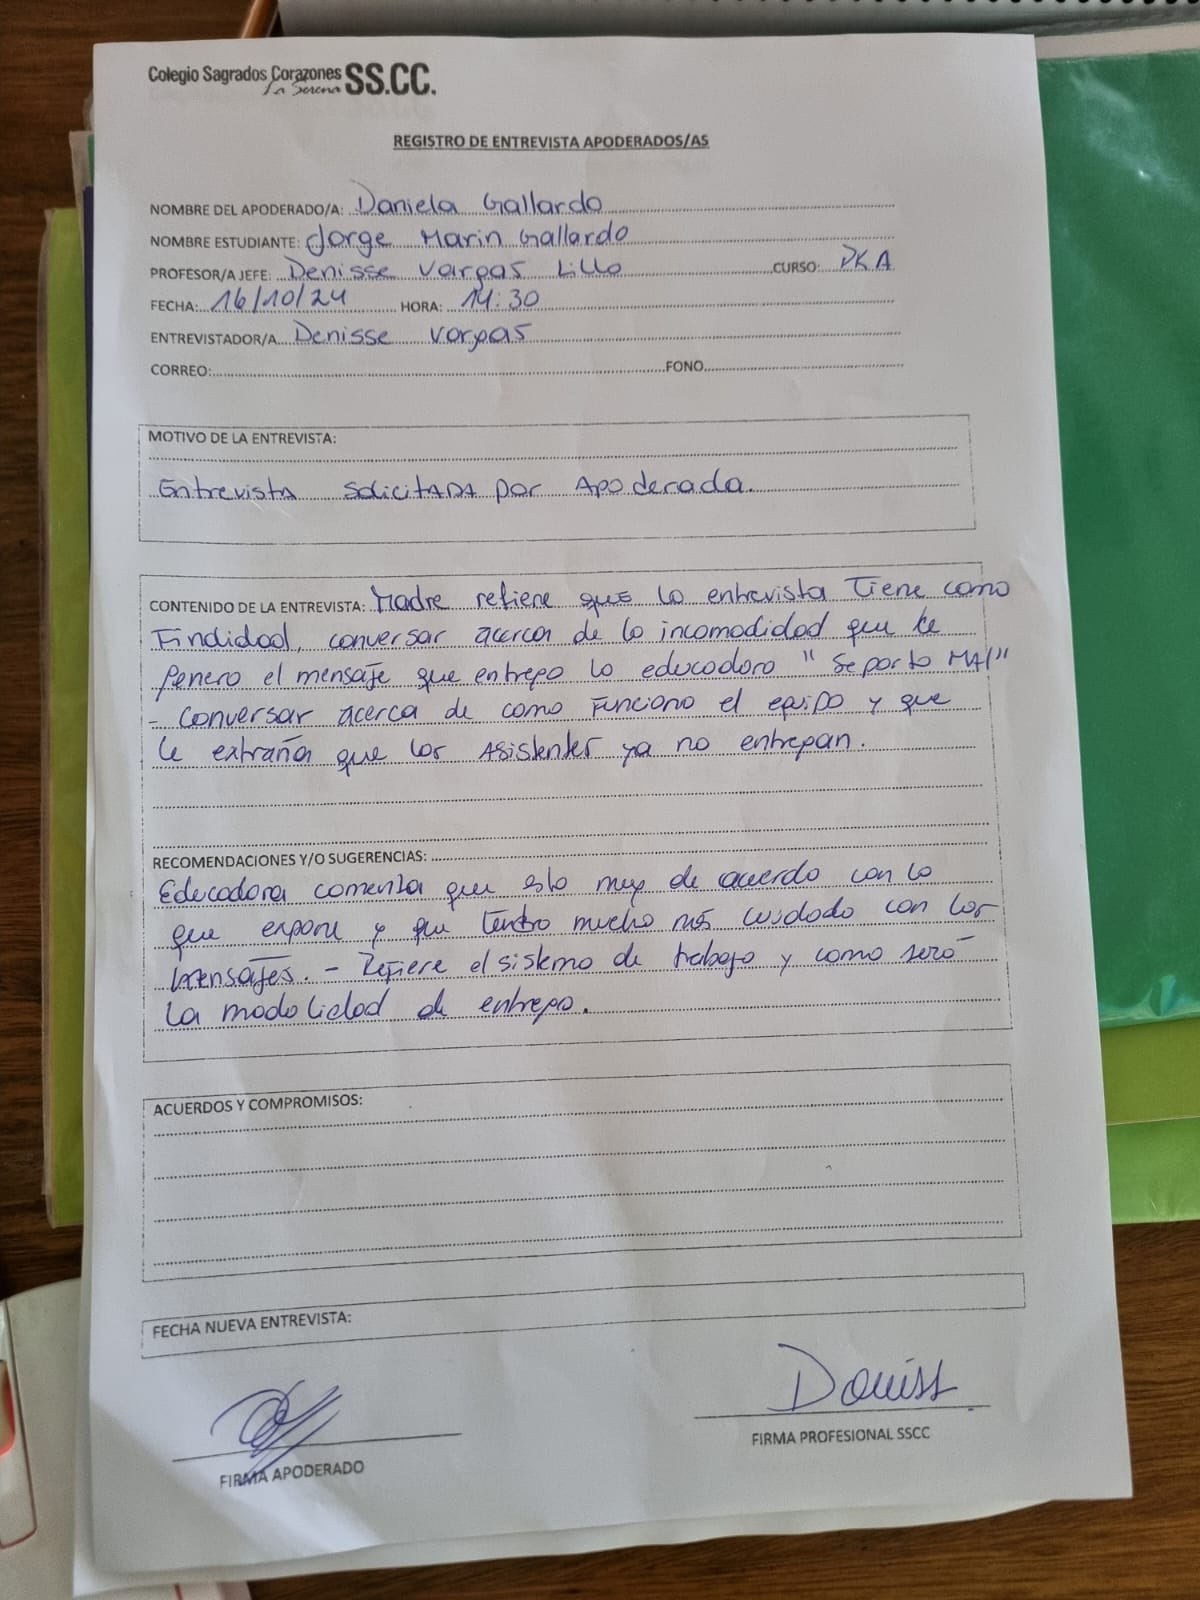 Colegio Sagrados Corazones SS.CC.
La Serena
REGISTRO DE ENTREVISTA APODERADOS/AS
NOMBRE DEL APODERADO/A: Daniela Gallardo
NOMBRE ESTUDIANTE: Jorge Marin Gallardo
PROFESOR/A JEFE: Denisse Vargas Lillo CURSO: PK A
FECHA: 16/10/24 HORA: 14:30
ENTREVISTADOR/A Denisse Vargas
CORREO: FONO
MOTIVO DE LA ENTREVISTA:
Entrevista solicitada por Apoderada.
CONTENIDO DE LA ENTREVISTA: Madre refiere que la entrevista tiene como
Findidad, conversar acerca de la incomodidad que le
genero el mensaje que entrego la educadora "Se porto MAl"
- Conversar acerca de como funciona el equipo y que
le extraña que las Asistentes ya no entregan.
RECOMENDACIONES Y/O SUGERENCIAS:
Educadora comenta que esta muy de acuerdo con lo
que expone y que tendra mucho más cuidado con los
mensajes. - Refiere el sistema de trabajo y como será
la modalidad de entrega.
ACUERDOS Y COMPROMISOS:
FECHA NUEVA ENTREVISTA:
Deniss
FIRMA PROFESIONAL SSCC
FIRMA APODERADO